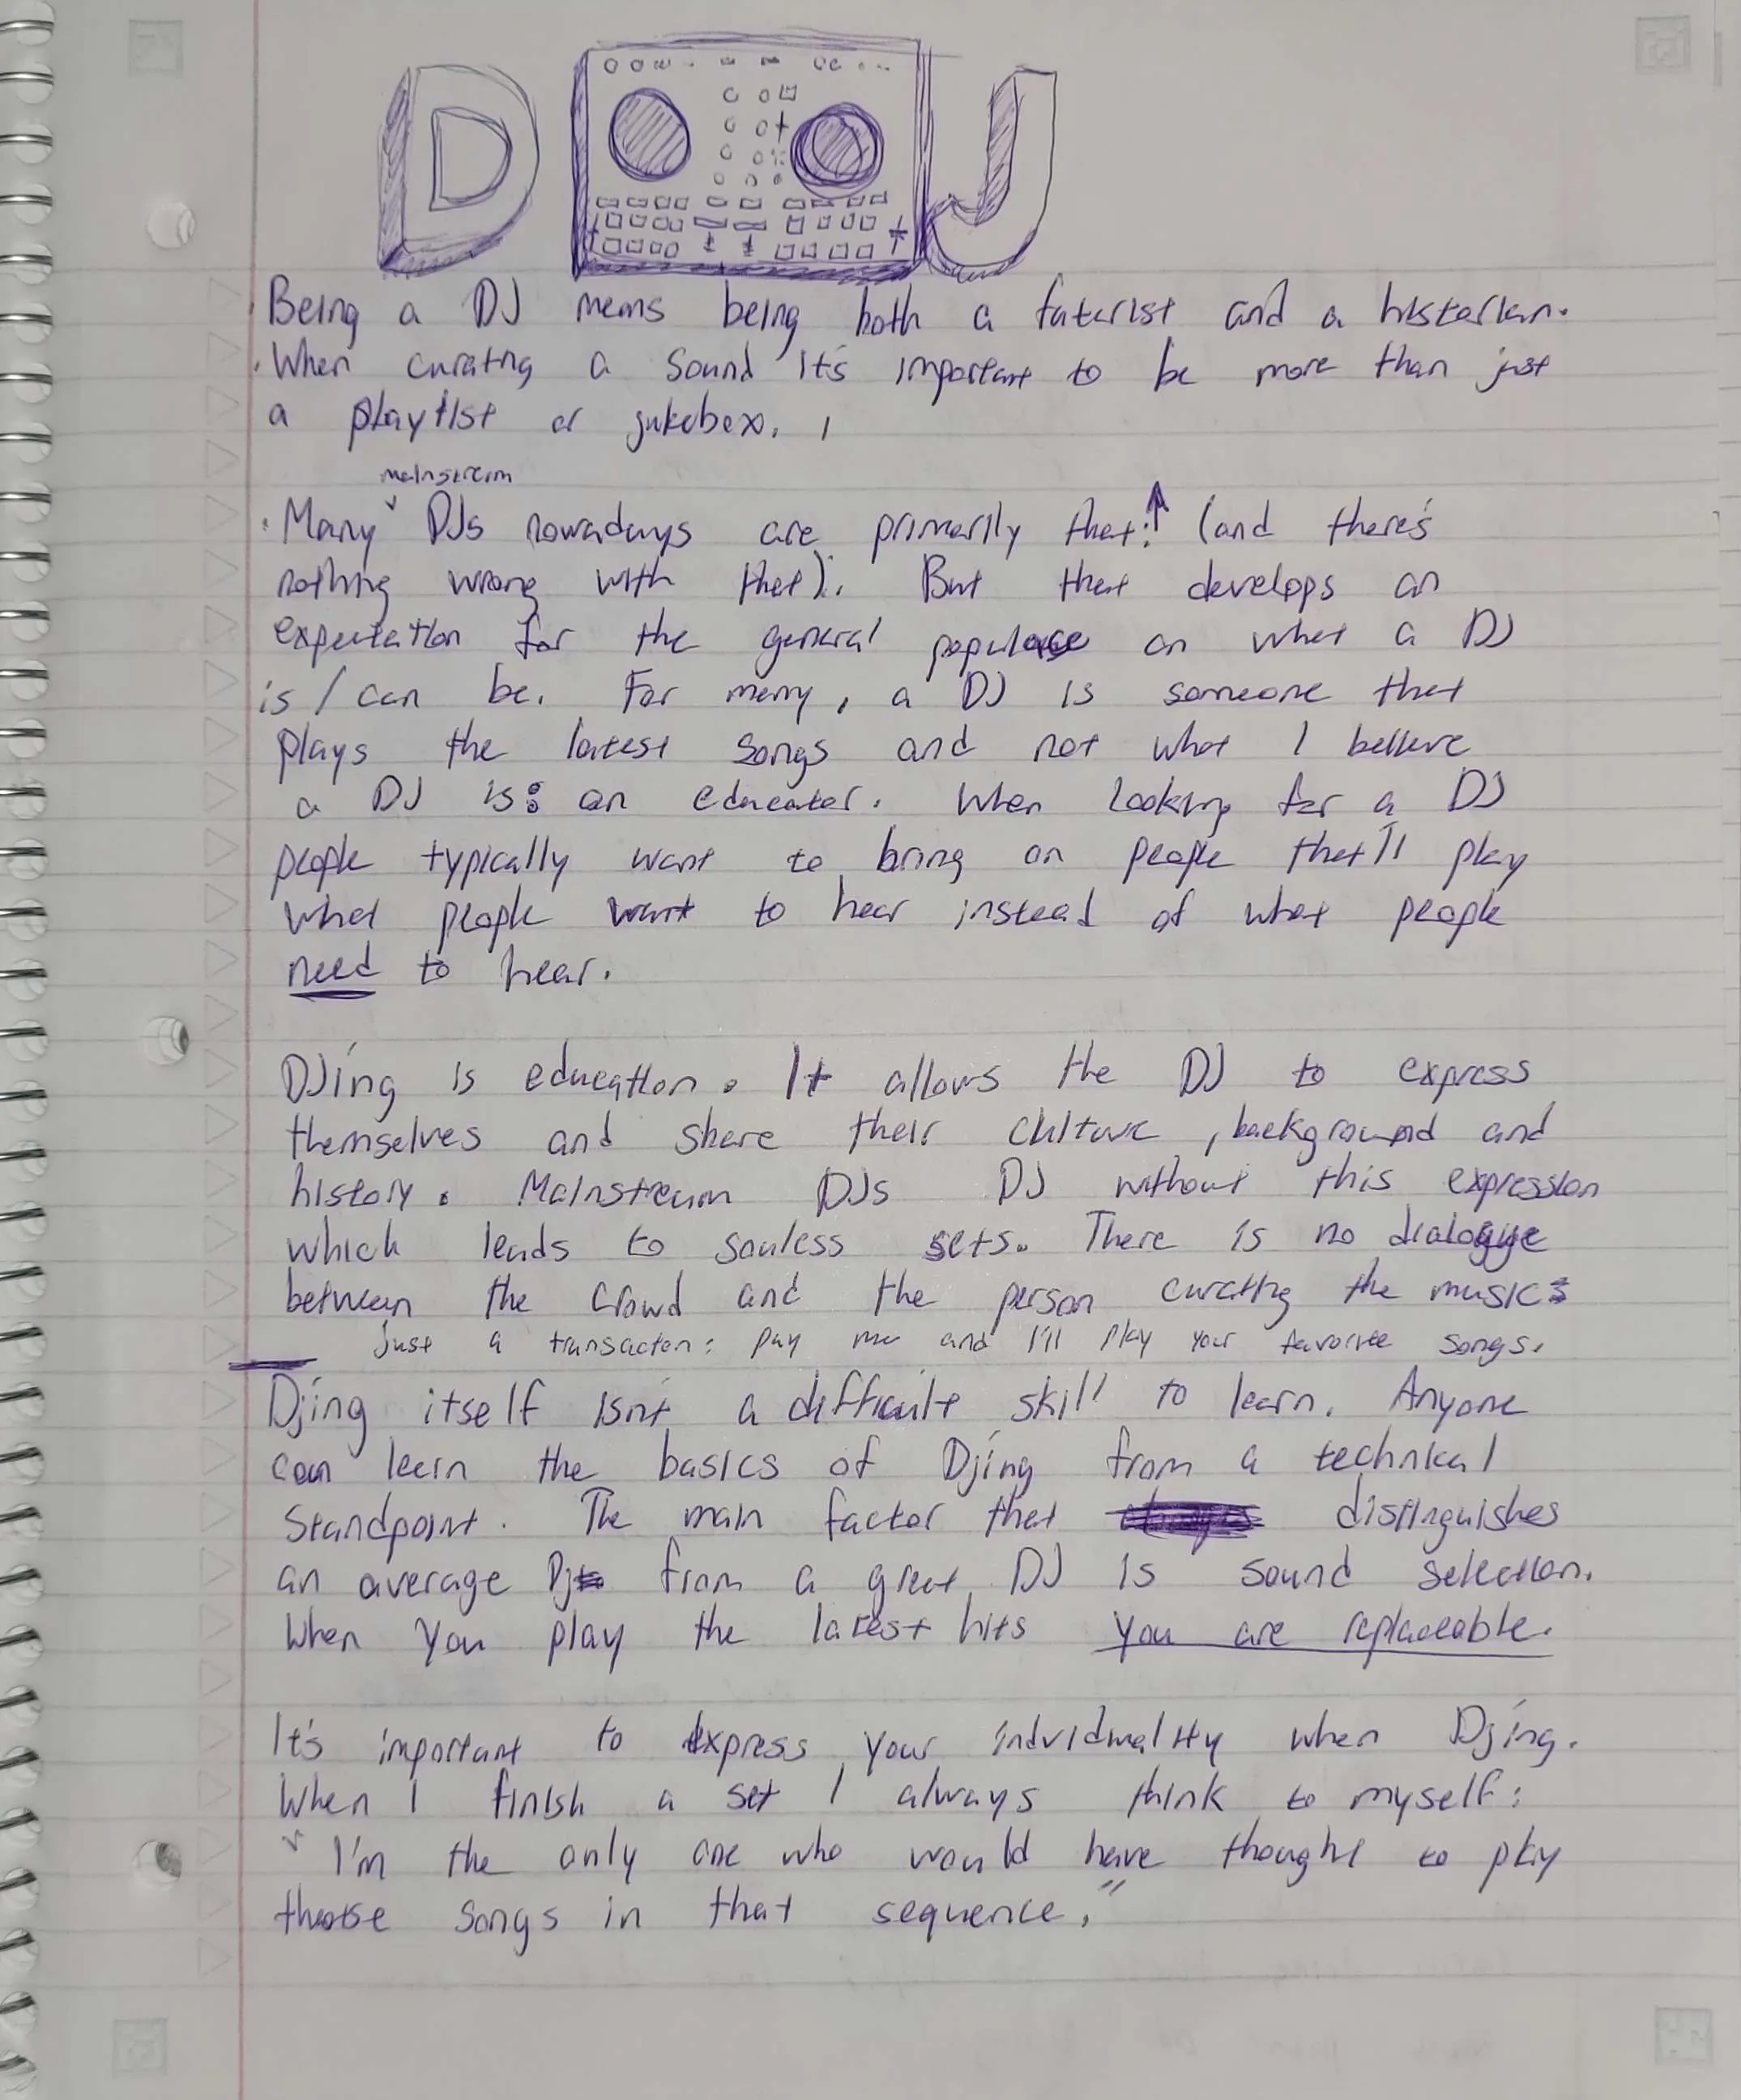 D J
Being a DJ means being both a futurist and a historian.
When curating a sound it's important to be more than just
a playlist or jukebox.
mainstream
Many DJs nowadays are primarily that. (and there's
nothing wrong with that). But that develops an
expectation for the general populace on what a DJ
is / can be. For many, a DJ is someone that
plays the latest songs and not what I believe
a DJ is: an educator. When looking for a DJ
people typically want to bring on people that'll play
what people want to hear instead of what people
need to hear.
DJing is education. It allows the DJ to express
themselves and share their culture, background and
history. Mainstream DJs DJ without this expression
which leads to souless sets. There is no dialogue
between the crowd and the person curating the music:
just a transaction: pay me and I'll play your favorite songs.
Djing itself isn't a difficult skill to learn. Anyone
can learn the basics of Djing from a technical
standpoint. The main factor that distinguishes
an average Dj from a great DJ is sound selection.
When you play the latest hits you are replaceable.
It's important to express your individuality when Djing.
When I finish a set I always think to myself:
"I'm the only one who would have thought to play
those songs in that sequence."